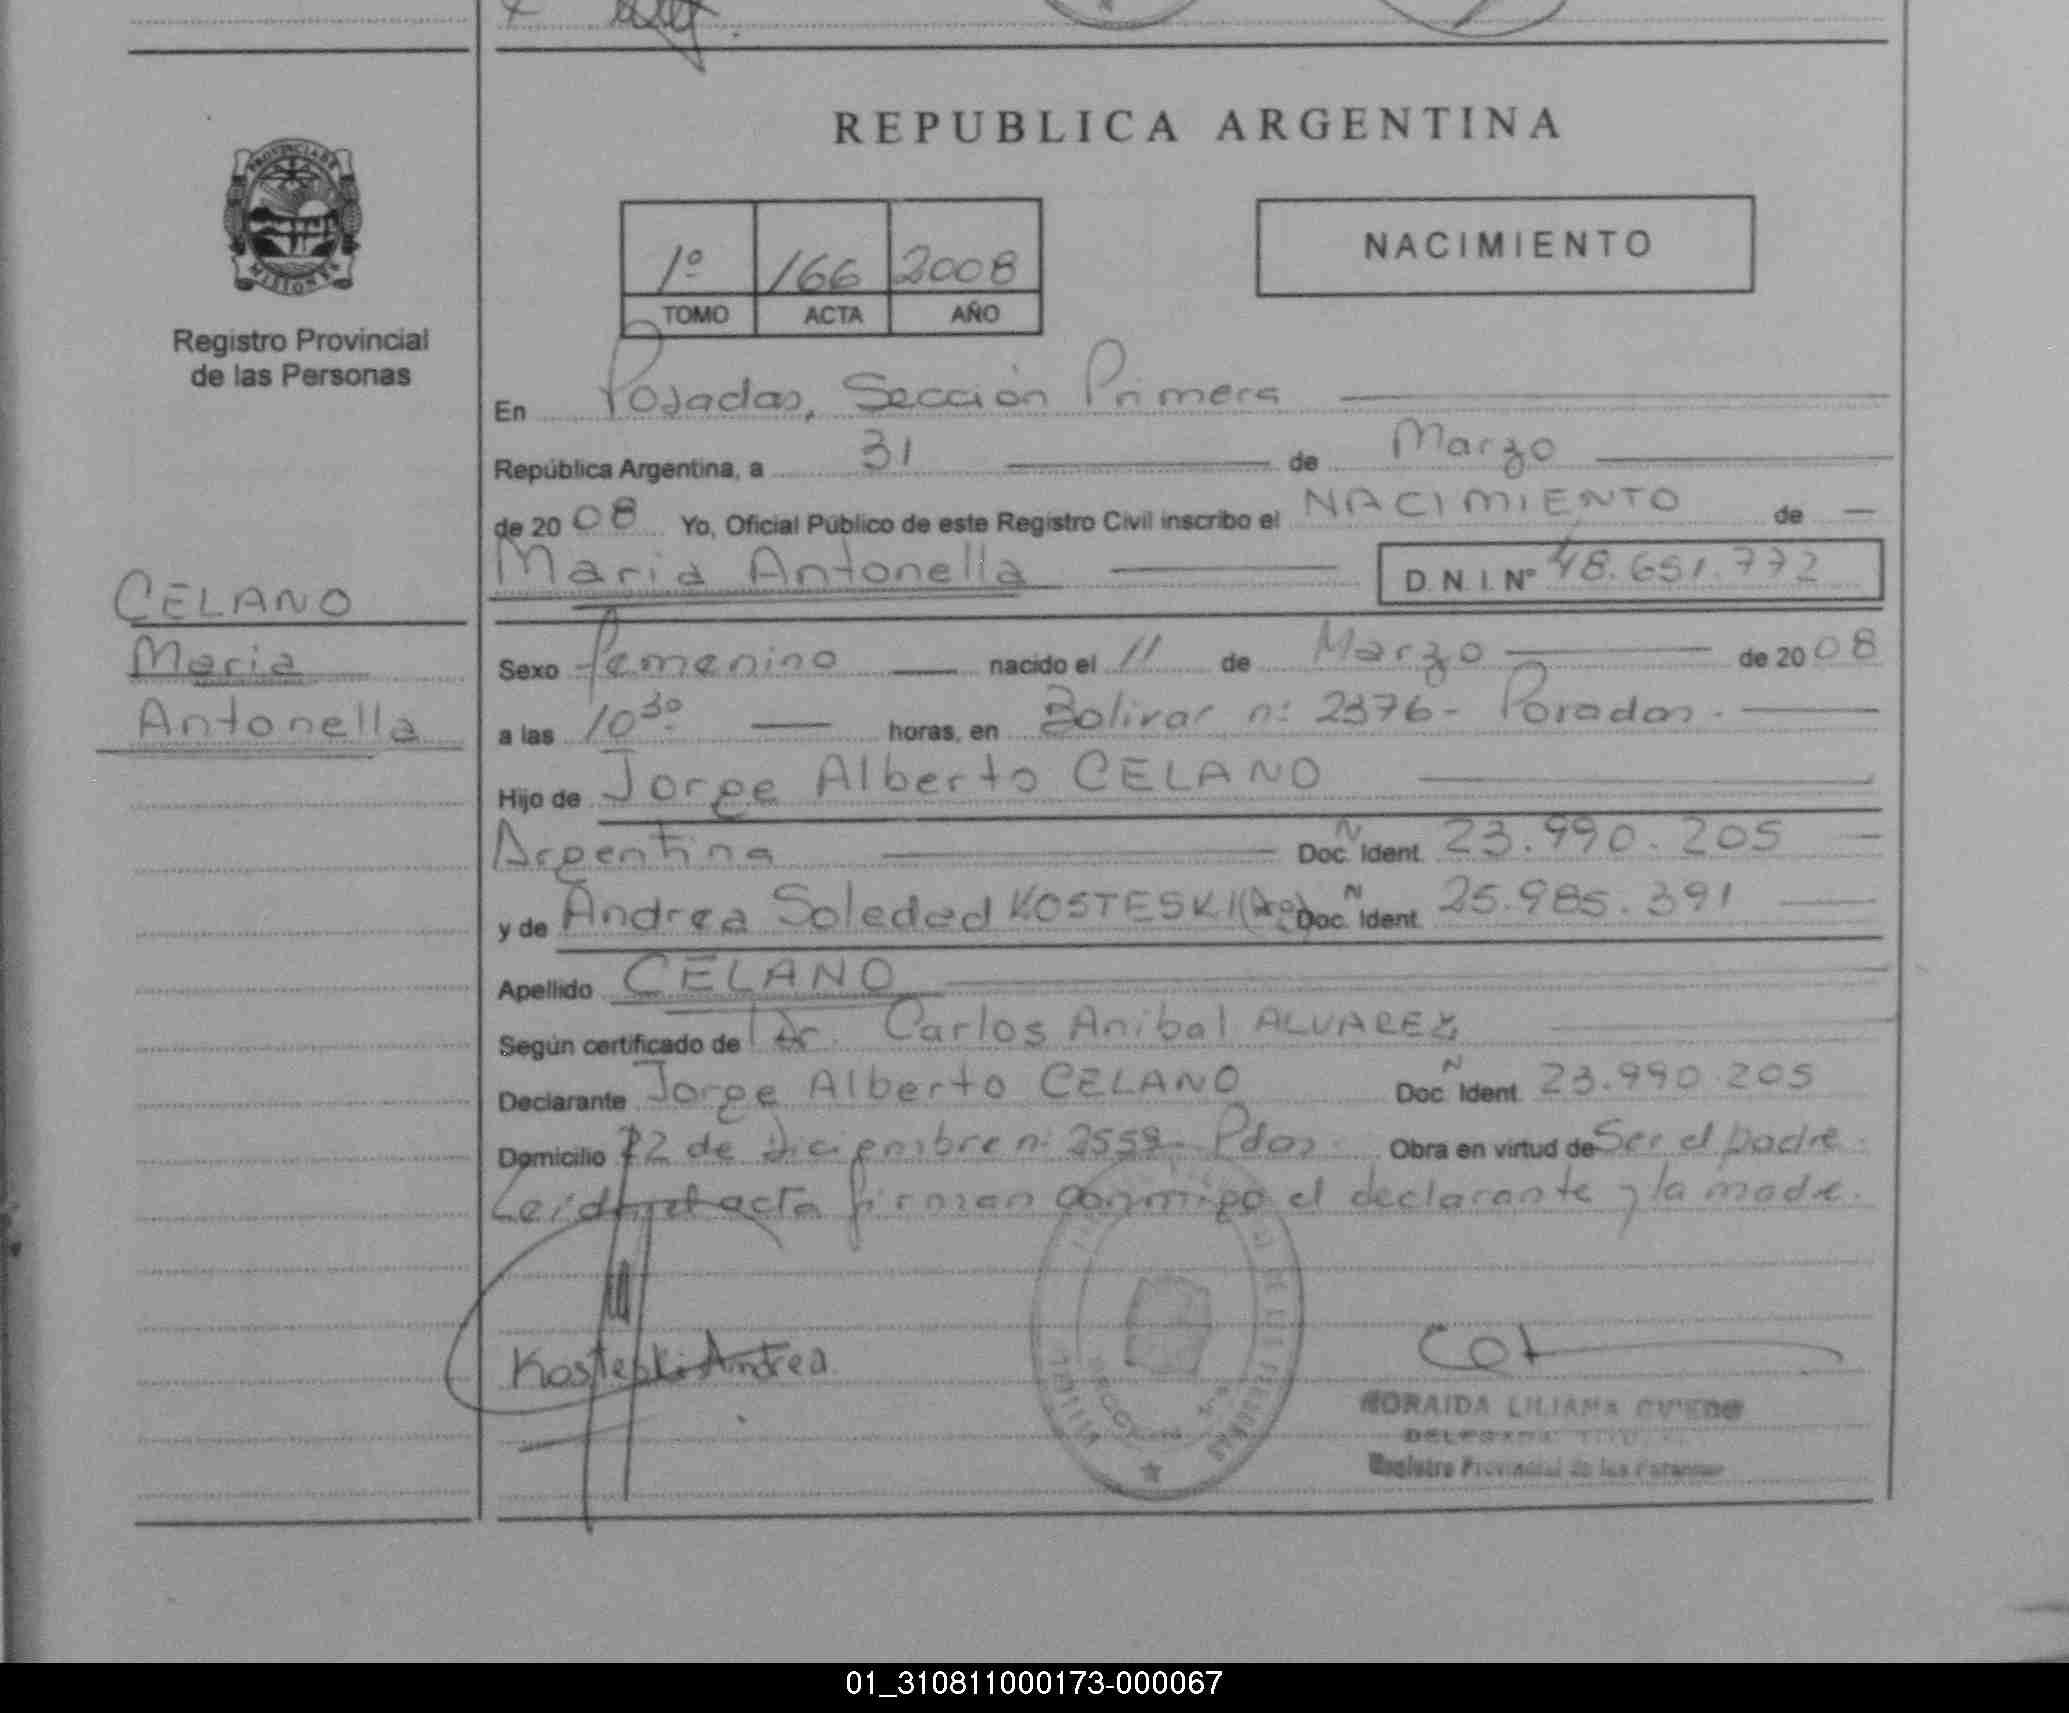 REPUBLICA ARGENTINA
PROVINCIA DE MISIONES
Registro Provincial
de las Personas
1º 166 2008
TOMO ACTA AÑO
NACIMIENTO
En Posadas, Sección Primera
República Argentina, a 31 de Marzo
de 2008 Yo, Oficial Público de este Registro Civil inscribo el NACIMIENTO de
Maria Antonella D.N.I. Nº 48.651.772
CELANO
Maria
Antonella
Sexo femenino nacido el 11 de Marzo de 2008
a las 10 30 horas, en Bolivar n: 2376- Posadas.
Hijo de Jorge Alberto CELANO
Argentina Doc. Ident. N 23.990.205
y de Andrea Soledad KOSTESKI (Arg) Doc. Ident. N 25.985.391
Apellido CELANO
Según certificado de Dr. Carlos Anibal ALVAREZ
Declarante Jorge Alberto CELANO Doc. Ident. N 23.990.205
Domicilio 12 de Diciembre n: 2559- Pdas. Obra en virtud de Ser el padre.
Leida el acta firman conmigo el declarante y la madre.
Kosteski Andrea
LILIANA OVIEDO
Registro Provincial de las Personas
01_310811000173-000067